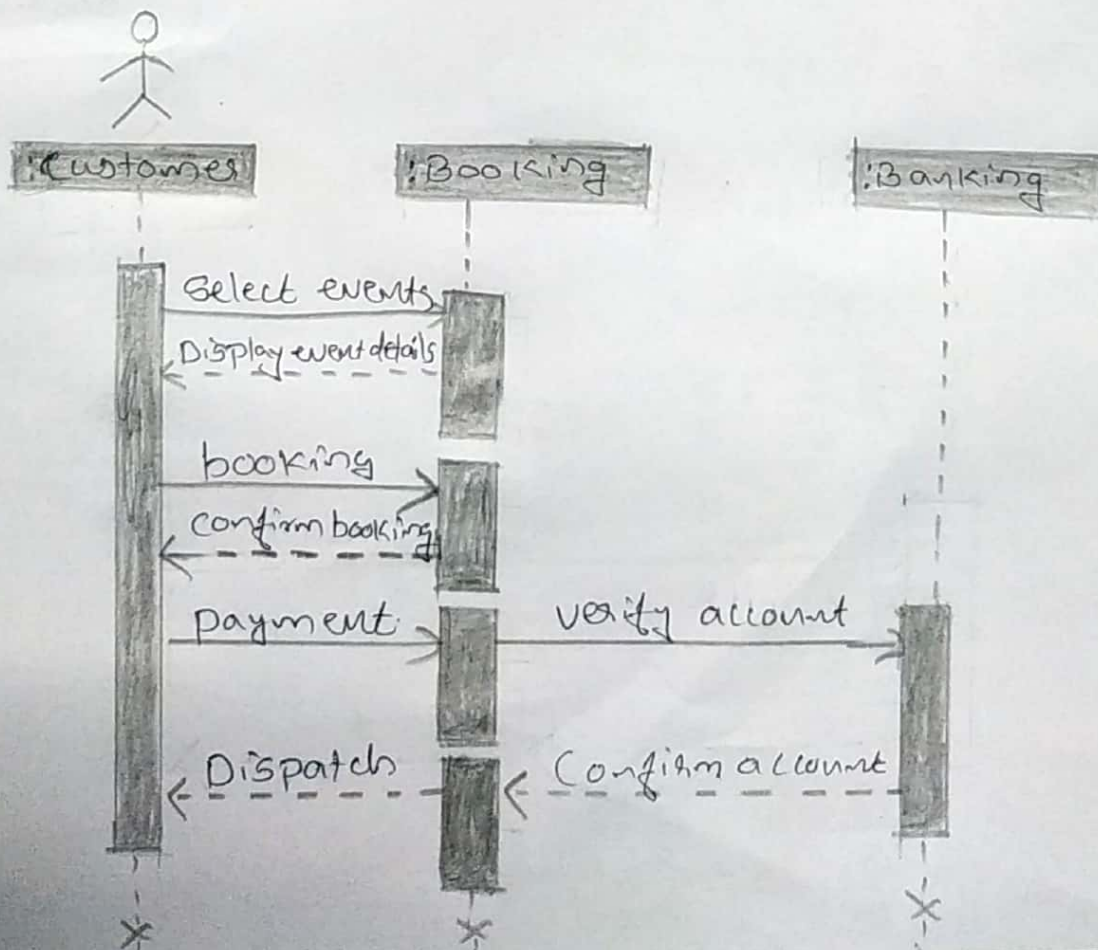 :Customer
:Booking
:Banking
Select events
Display event details
booking
Confirm booking
payment
verify account
Dispatch
Confirm account